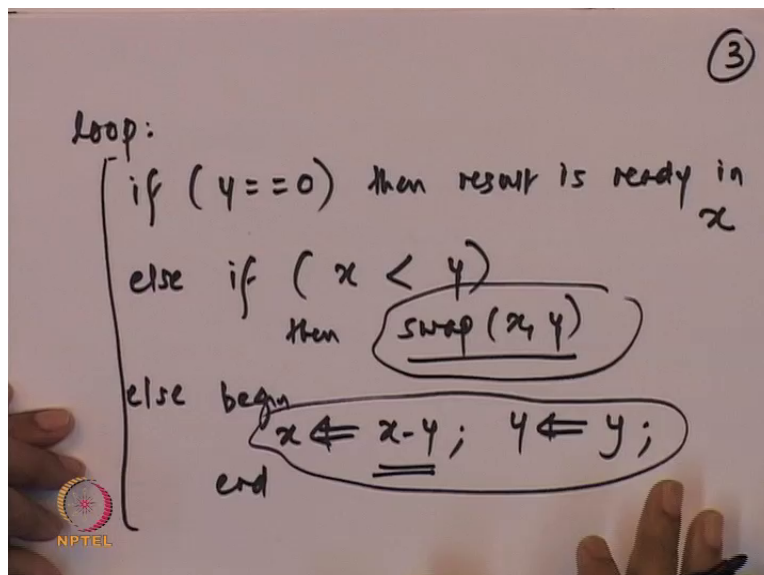 3
loop:
if (y==0) then result is ready in
x
else if (x < y)
then swap(x, y)
else begin
x ⇐ x-y; y ⇐ y;
end
NPTEL